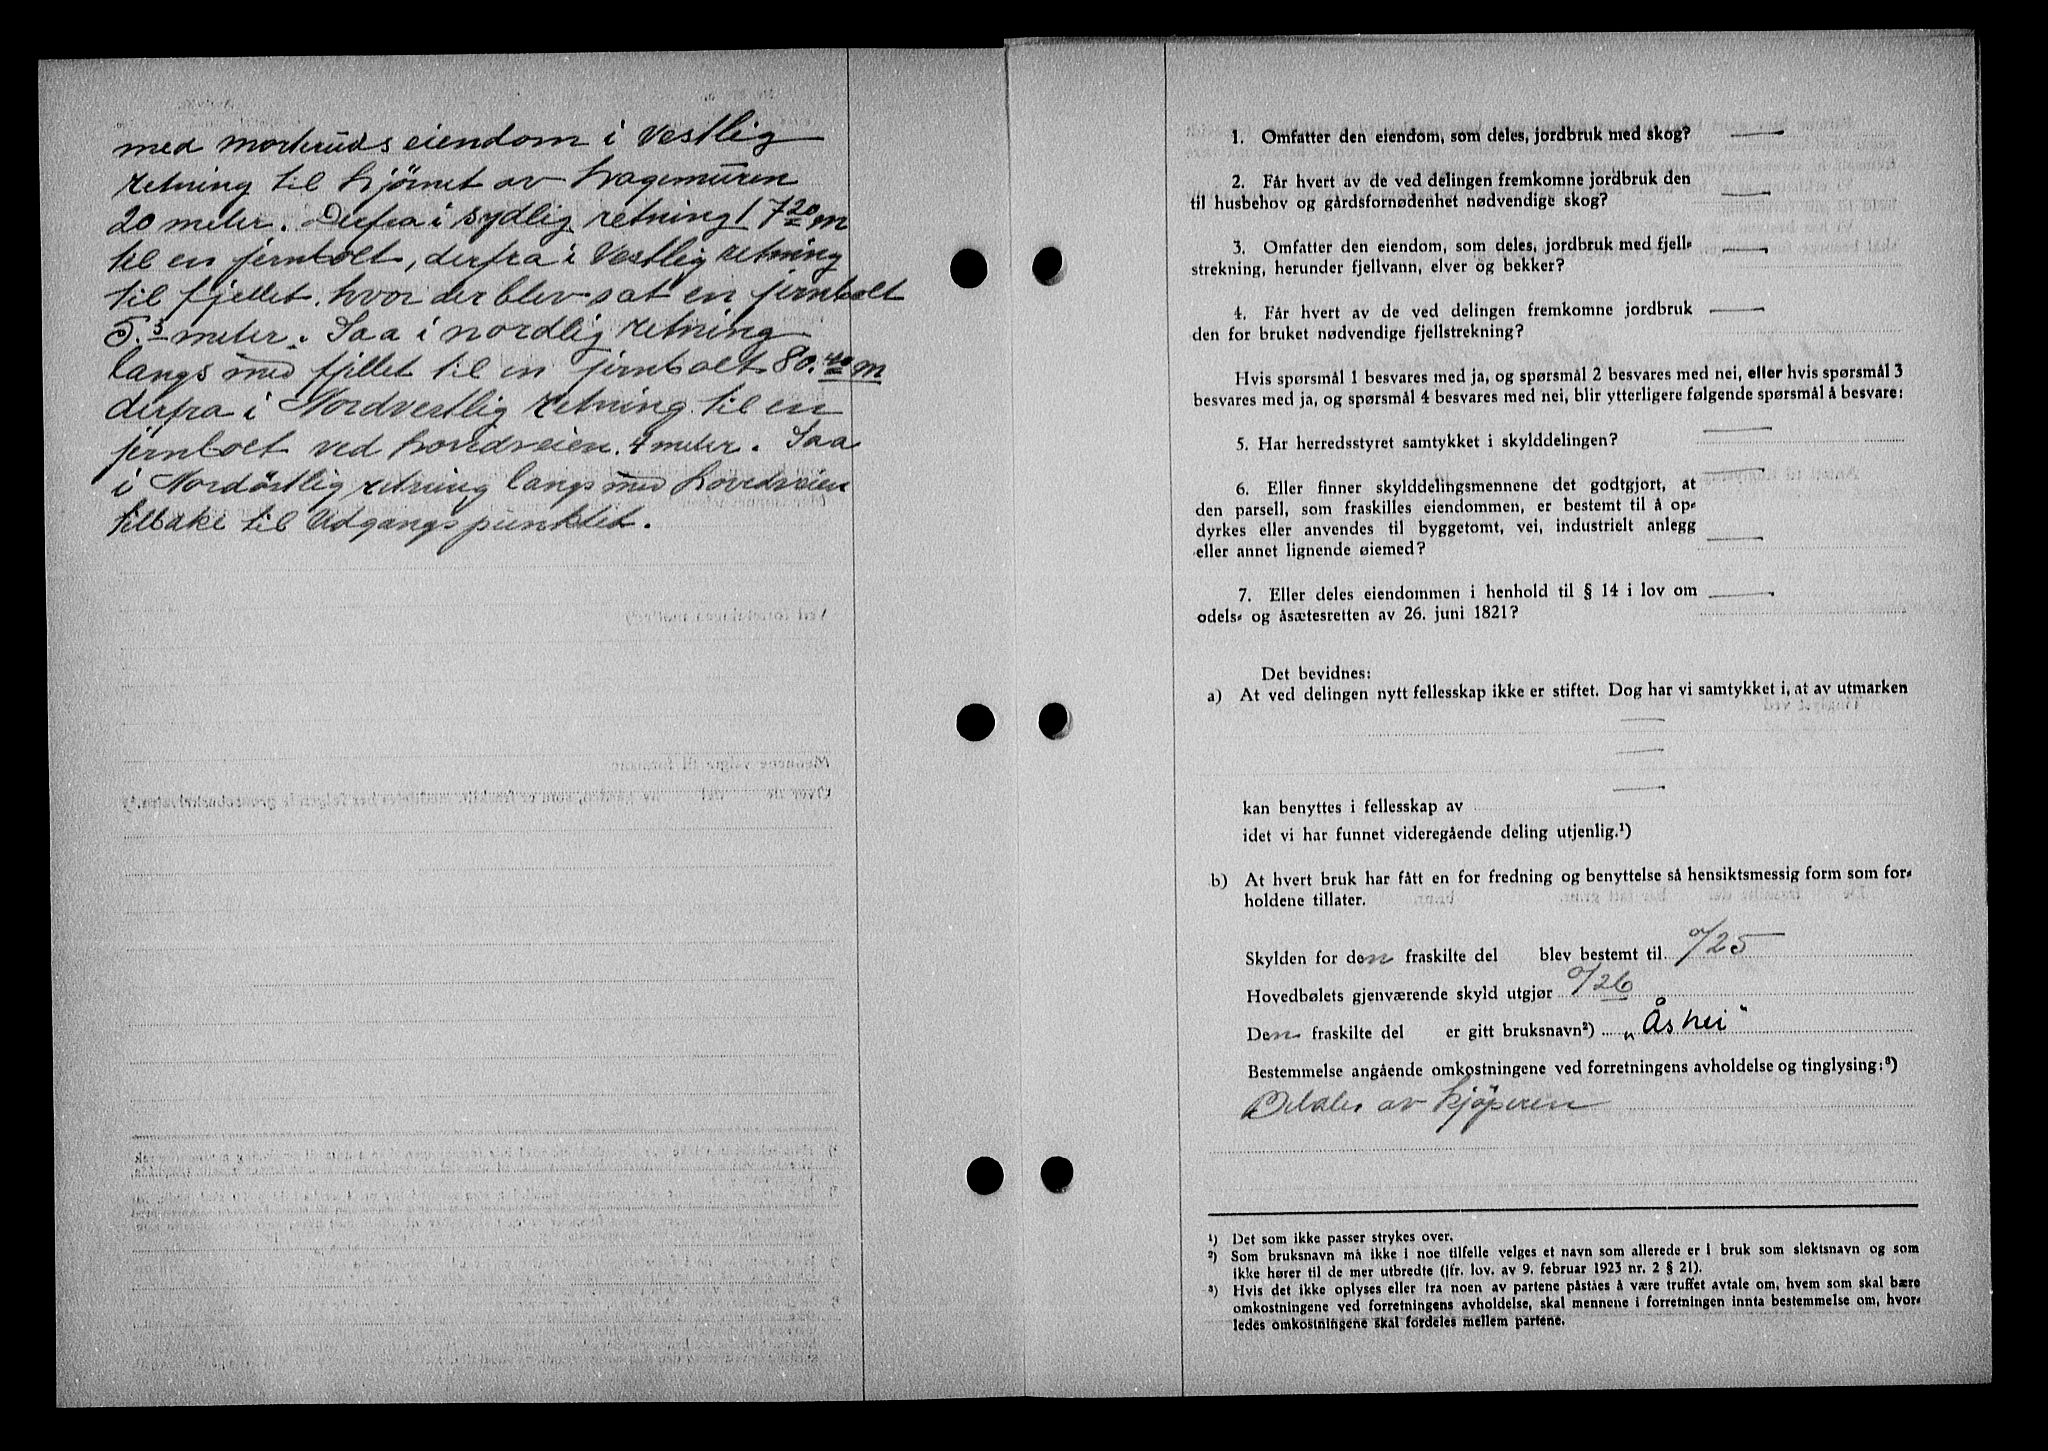 med Morteruds eiendom i Vestlig
retning til hjørnet av hagemuren
20 meter. Derfra i sydlig retning 17 20 m
til en jernbolt, derfra i Vestlig retning
til fjellet, hvor der blev sat en jernbolt
5.5 meter. Saa i nordlig retning
langs med fjellet til en jernbolt 80.40 m
derfra i Nordvestlig retning til en
jernbolt ved hovedveien. 4 meter. Saa
i Nordöstlig retning langs med hovedveien
tilbake til Udgangspunktet.
1. Omfatter den eiendom, som deles, jordbruk med skog? —
2. Får hvert av de ved delingen fremkomne jordbruk den
til husbehov og gårdsfornødenhet nødvendige skog? —
3. Omfatter den eiendom, som deles, jordbruk med fjell-
strekning, herunder fjellvann, elver og bekker? —
4. Får hvert av de ved delingen fremkomne jordbruk
den for bruket nødvendige fjellstrekning? —
Hvis spørsmål 1 besvares med ja, og spørsmål 2 besvares med nei, eller hvis spørsmål 3
besvares med ja, og spørsmål 4 besvares med nei, blir ytterligere følgende spørsmål å besvare:
5. Har herredsstyret samtykket i skylddelingen? —
6. Eller finner skylddelingsmennene det godtgjort, at
den parsell, som fraskilles eiendommen, er bestemt til å op-
dyrkes eller anvendes til byggetomt, vei, industrielt anlegg
eller annet lignende øiemed? —
7. Eller deles eiendommen i henhold til § 14 i lov om
odels- og åsætesretten av 26. juni 1821? —
Det bevidnes:
a) At ved delingen nytt fellesskap ikke er stiftet. Dog har vi samtykket i, at av utmarken
—
—
—
kan benyttes i fellesskap av
idet vi har funnet videregående deling utjenlig.¹)
b) At hvert bruk har fått en for fredning og benyttelse så hensiktsmessig form som for-
holdene tillater.
Skylden for den fraskilte del blev bestemt til 0/25
Hovedbølets gjenværende skyld utgjør 0/26
Den fraskilte del er gitt bruksnavn²) „Åshei"
Bestemmelse angående omkostningene ved forretningens avholdelse og tinglysing:³)
Betales av kjöperen
¹) Det som ikke passer strykes over.
²) Som bruksnavn må ikke i noe tilfelle velges et navn som allerede er i bruk som slektsnavn og som
ikke hører til de mer utbredte (jfr. lov. av 9. februar 1923 nr. 2 § 21).
³) Hvis det ikke oplyses eller fra noen av partene påståes å være truffet avtale om, hvem som skal bære
omkostningene ved forretningens avholdelse, skal mennene i forretningen innta bestemmelse om, hvor-
ledes omkostningene skal fordeles mellem partene.